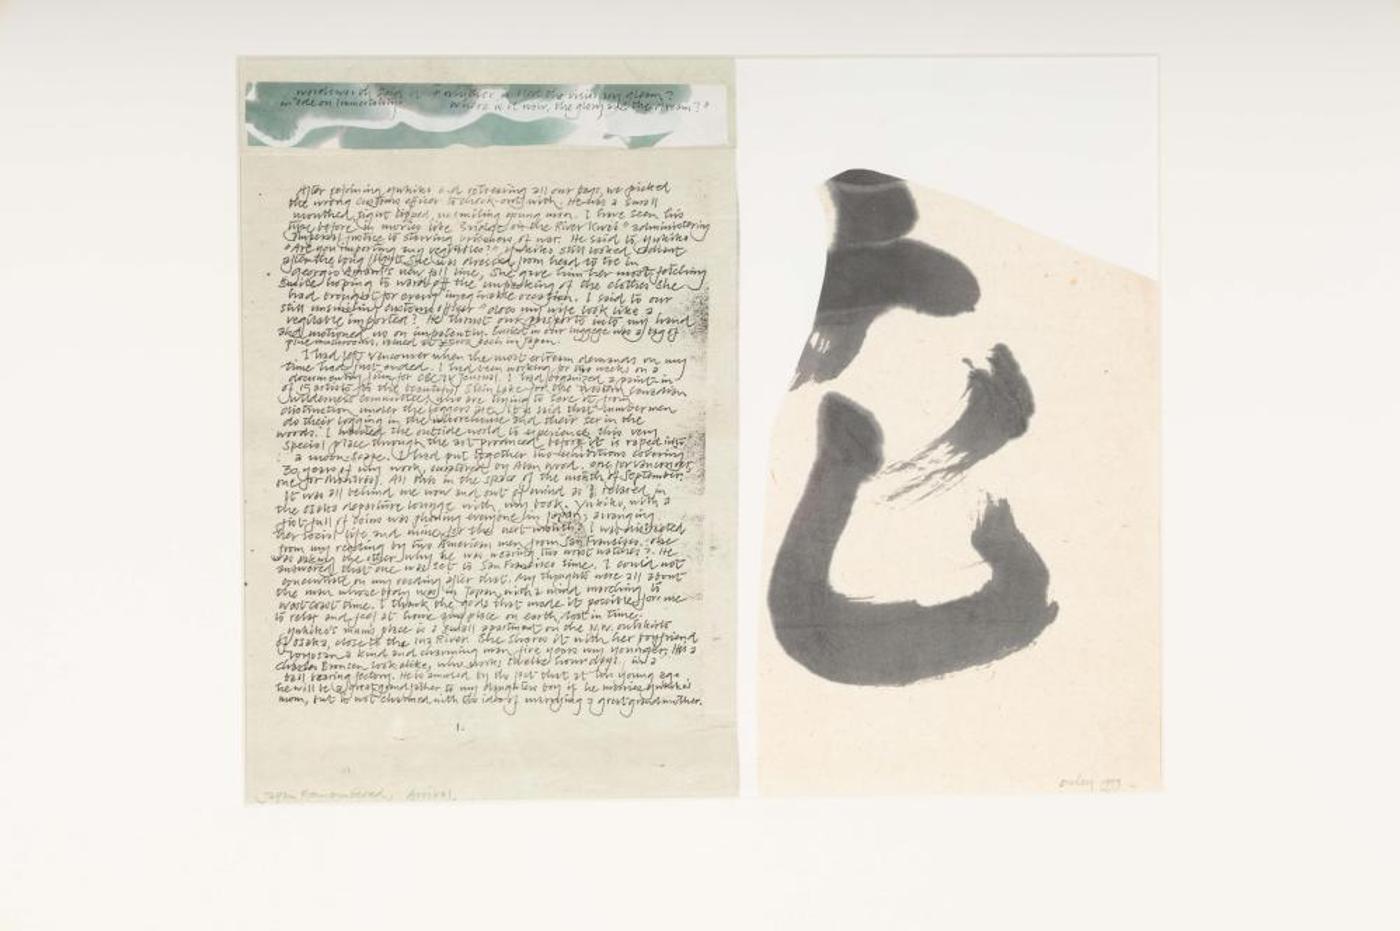 wordsworth said it "whither is fled the visionary gleam?
in ode on Immortality where is it now, the glory and the dream?"
After rejoining Yukiko and retrieving all our bags, we picked
the wrong customs officer to check out with. He was a small
mouthed, tight lipped, unsmiling young man. I have seen his
type before in movies like Bridge on the River Kwai" administering
Imperial justice to starving prisoners of war. He said to Yukiko
"Are you importing any vegetables?" Yukiko still looked radiant
after the long flight. She was dressed from head to toe in
Georgio Armani's new fall line, She gave him her most fetching
smile hoping to ward off the unpacking of the clothes she
had brought for every imaginable occasion. I said to our
still unsmiling customs officer "does my wife look like a
vegetable imported? He thrust our passports into my hand
and motioned us on impatiently. in our luggage was a bag of
pine mushrooms, valued at each in Japan.
I had left Vancouver when the most extreme demands on my
time had just ended. I had been working for two weeks on a
documentary film for CBC TV Journal. I had organized a paint-in
of 15 artists to the beautiful Stein Lake for the western Canadian
wilderness committee, who are trying to save it from
distinction under the loggers axe. It is said that lumbermen
do their logging in the whorehouse and their sex in the
woods. I wanted the outside world to experience this very
special place through the art produced before it is raped into
a moon-scape. I had put together two exhibitions covering
30 years of my work, curated by Alan Wood. one for Vancouver
one for Montreal. All this in the space of the month of September.
It was all behind me now and out of mind as I relaxed in
the Osaka departure lounge with my book. Yukiko, with a
fist full of coins was phoning everyone in Japan, arranging
her social life and mine for the next month. I was distracted
from my reading by two American men from San Francisco. one
was asking the other why he was wearing two wrist watches?. He
answered that one was set to San Francisco time. I could not
concentrate on my reading after that. My thoughts were all about
the man whose body was in Japan, with a mind marching to
west coast time. I thank the gods that made it possible for me
to relax and feel at home any place on earth, lost in time.
Yukiko's mums place is a small apartment on the N.W. outskirts
of Osaka, close to the Ina River. She shares it with her boyfriend
a kind and charming man, five years my younger. He's a
Charles Bronson look alike, who works twelve hour days, in a
ball bearing factory. He is amused by the fact that at his young age
he will be a great grandfather to my daughters boy if he marries Yukiko's
mom, but is not charmed with the idea of marrying a great grandmother.
1.
Japan Remembered, Arrival.
Onley 1989